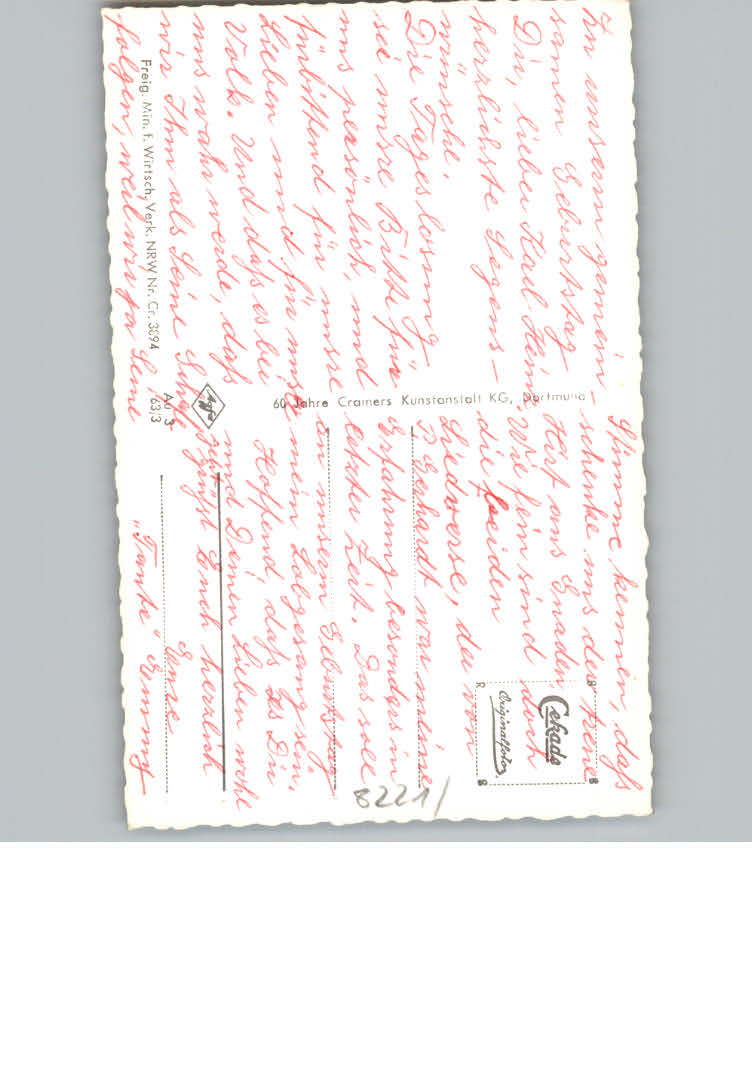 Zu unserm gemein-
samen Geburtstag
Dir, lieber Karl Heinz
herzlichste Segens-
wünsche.
Die Tageslosung
sei unsre Bitte für
uns persönlich, und
fürbittend für unsre
Lieben und für unser
Volk. Und daß es bei
uns wahr werde, daß
wir Ihm als Seine Schafe
folgen, weil wir ja Seine
Stimme kennen, daß
schenke uns der treue
Hirt aus Gnaden.
Wie fein sind doch
die beiden
Liedverse, der von
P. Gerhardt war meine
Erfahrung besonders in
letzter Zeit. Das soll
an unserm Geburtstag
mein Lobgesang sein.
Hoffend daß es Dir
und Deinen Lieben wohl
geht, grüßt Euch herzlich
Eure
"Tante" Emmy
Freig. Min. f. Wirtsch. Verk. NRW Nr. Cr. 3894
Agfa
Ad 3
63/3
60 Jahre Cramers Kunstanstalt KG, Dortmund
Cekade
Originalfoto
R
B
8221/